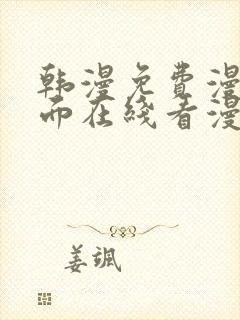 韩漫免费漫
而在线看漫
姜颂